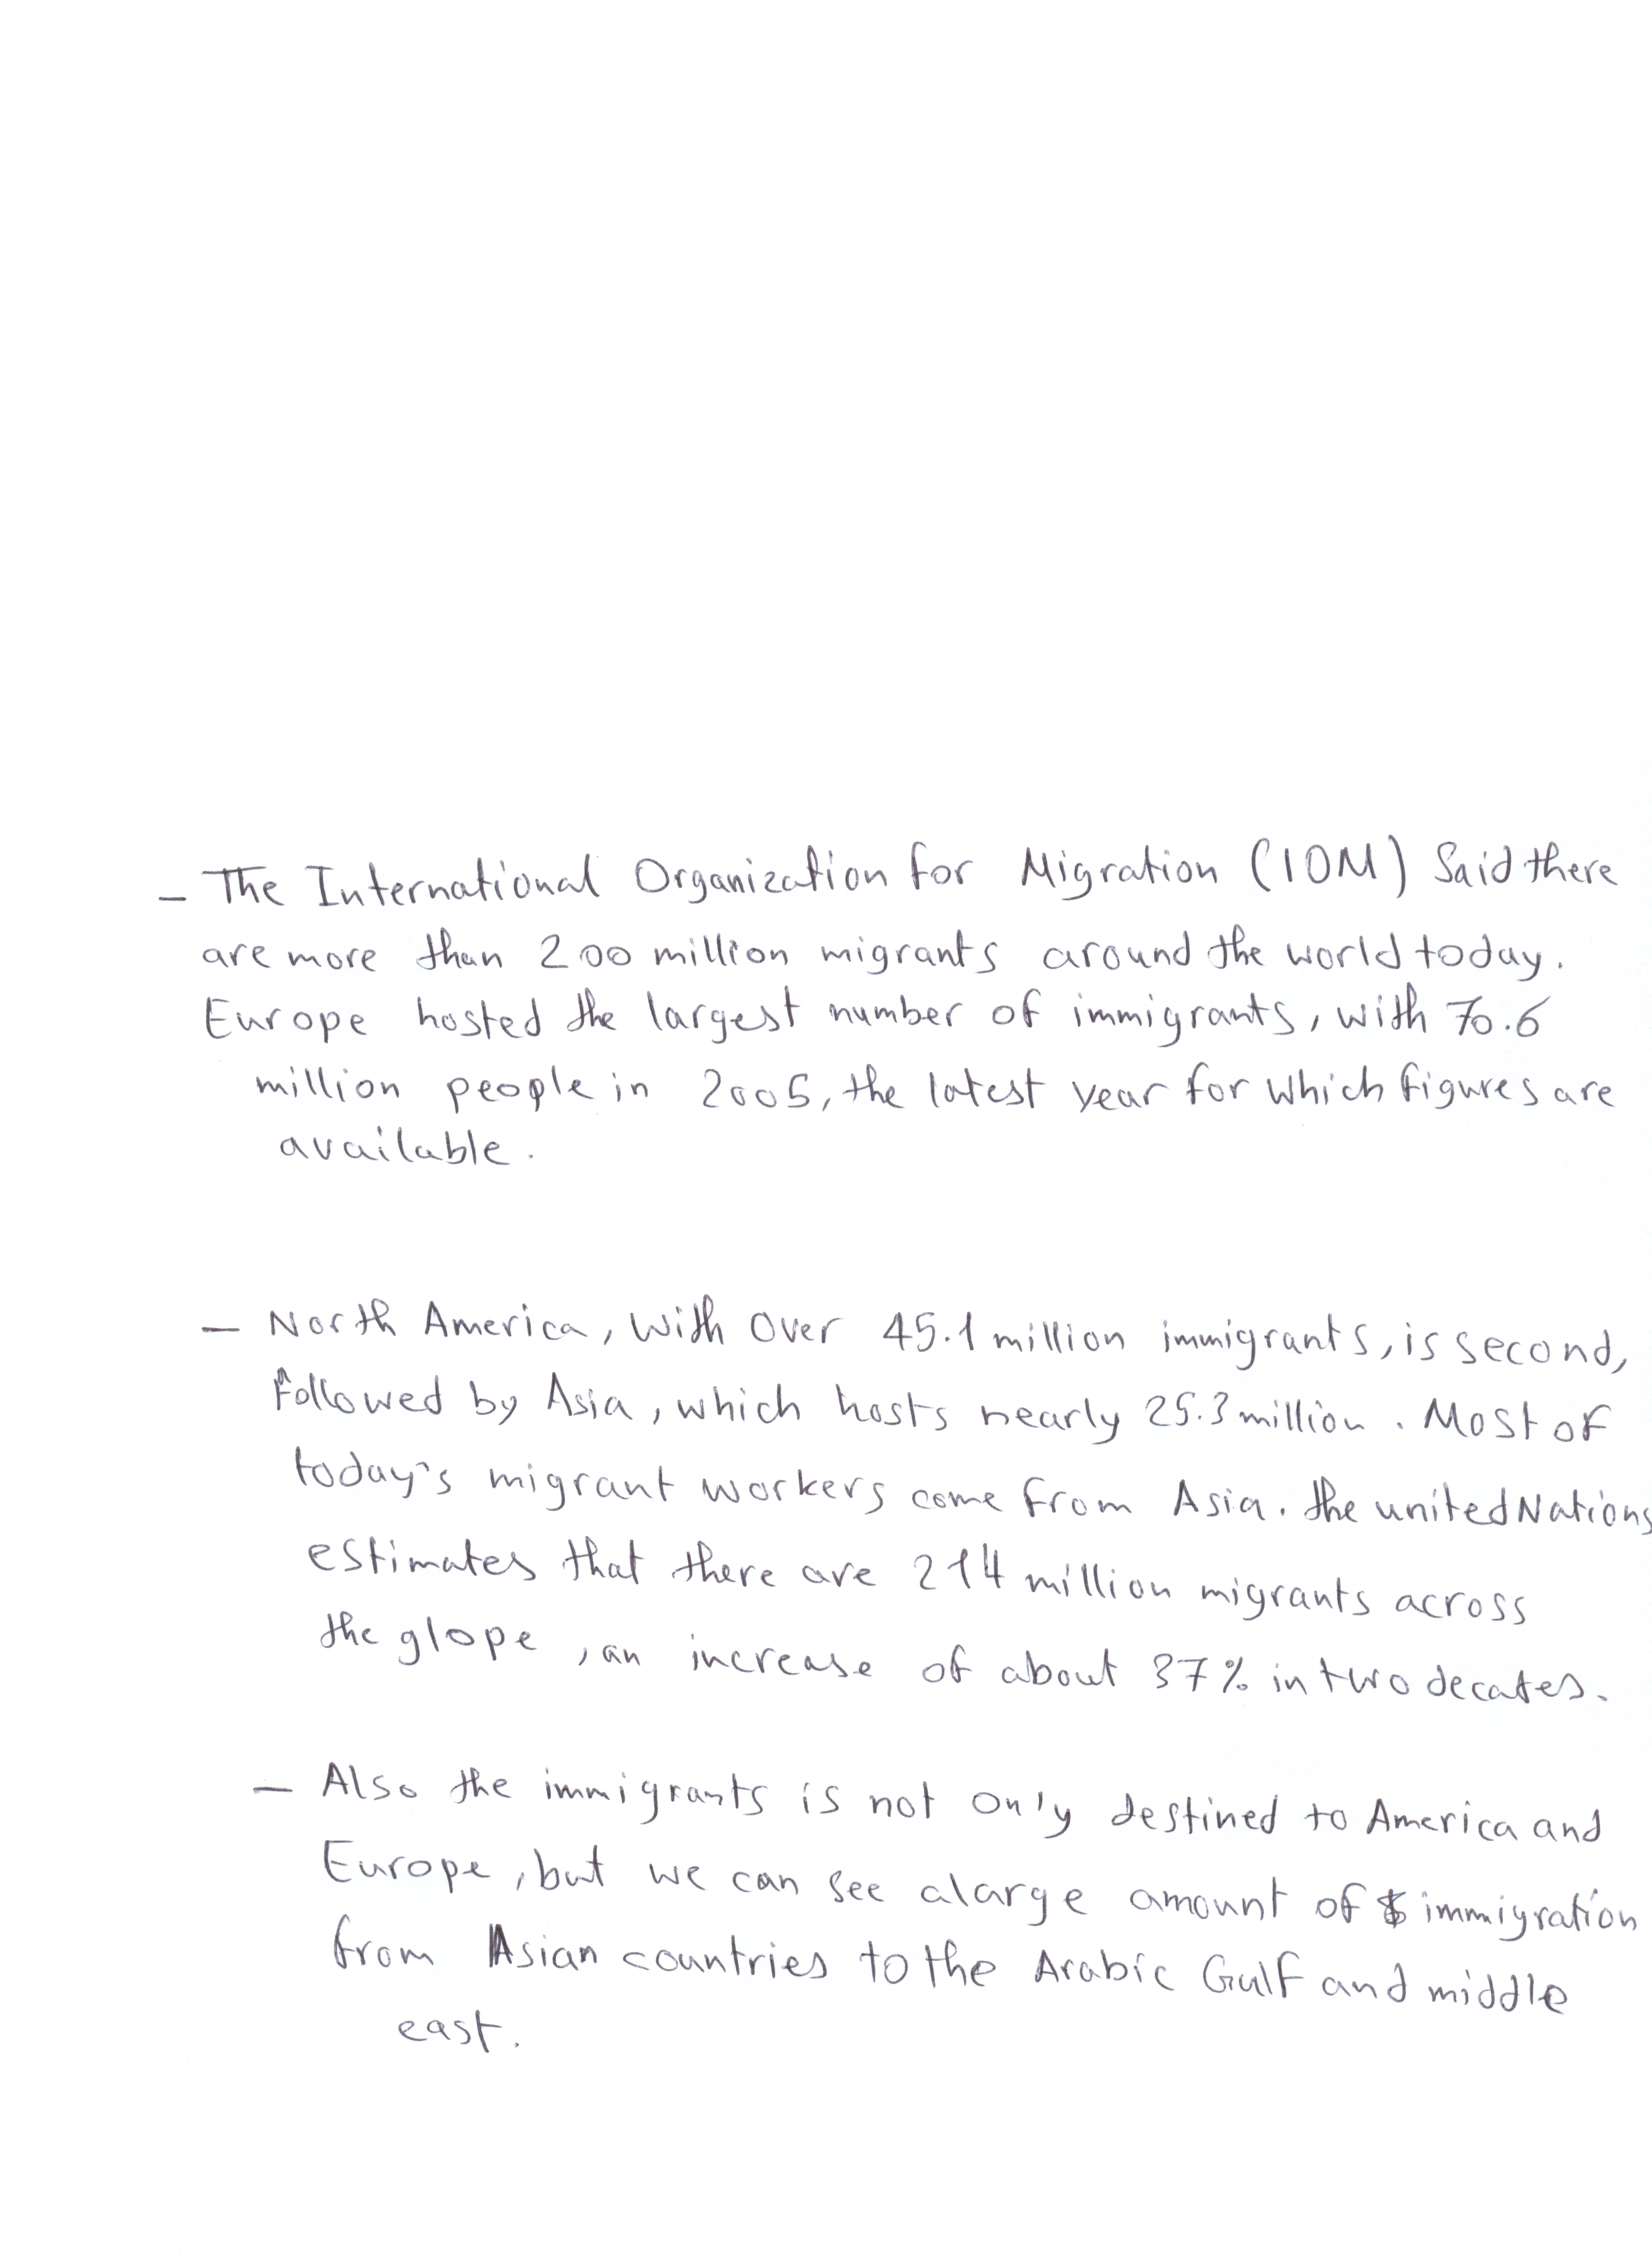 - The International Organization for Migration (IOM) Said there
are more than 200 million migrants around the world today.
Europe hosted the largest number of immigrants, with 70.6
million people in 2005, the latest year for which figures are
available.
- North America, with over 45.1 million immigrants, is second,
followed by Asia, which hosts nearly 25.3 million. Most of
today's migrant workers come from Asia. the united Nations
estimates that there are 214 million migrants across
the glope, an increase of about 37% in two decates.
- Also the immigrants is not only destined to America and
Europe, but we can see alarge amount of immiyration
from Asian countries to the Arabic Gulf and middle
east.